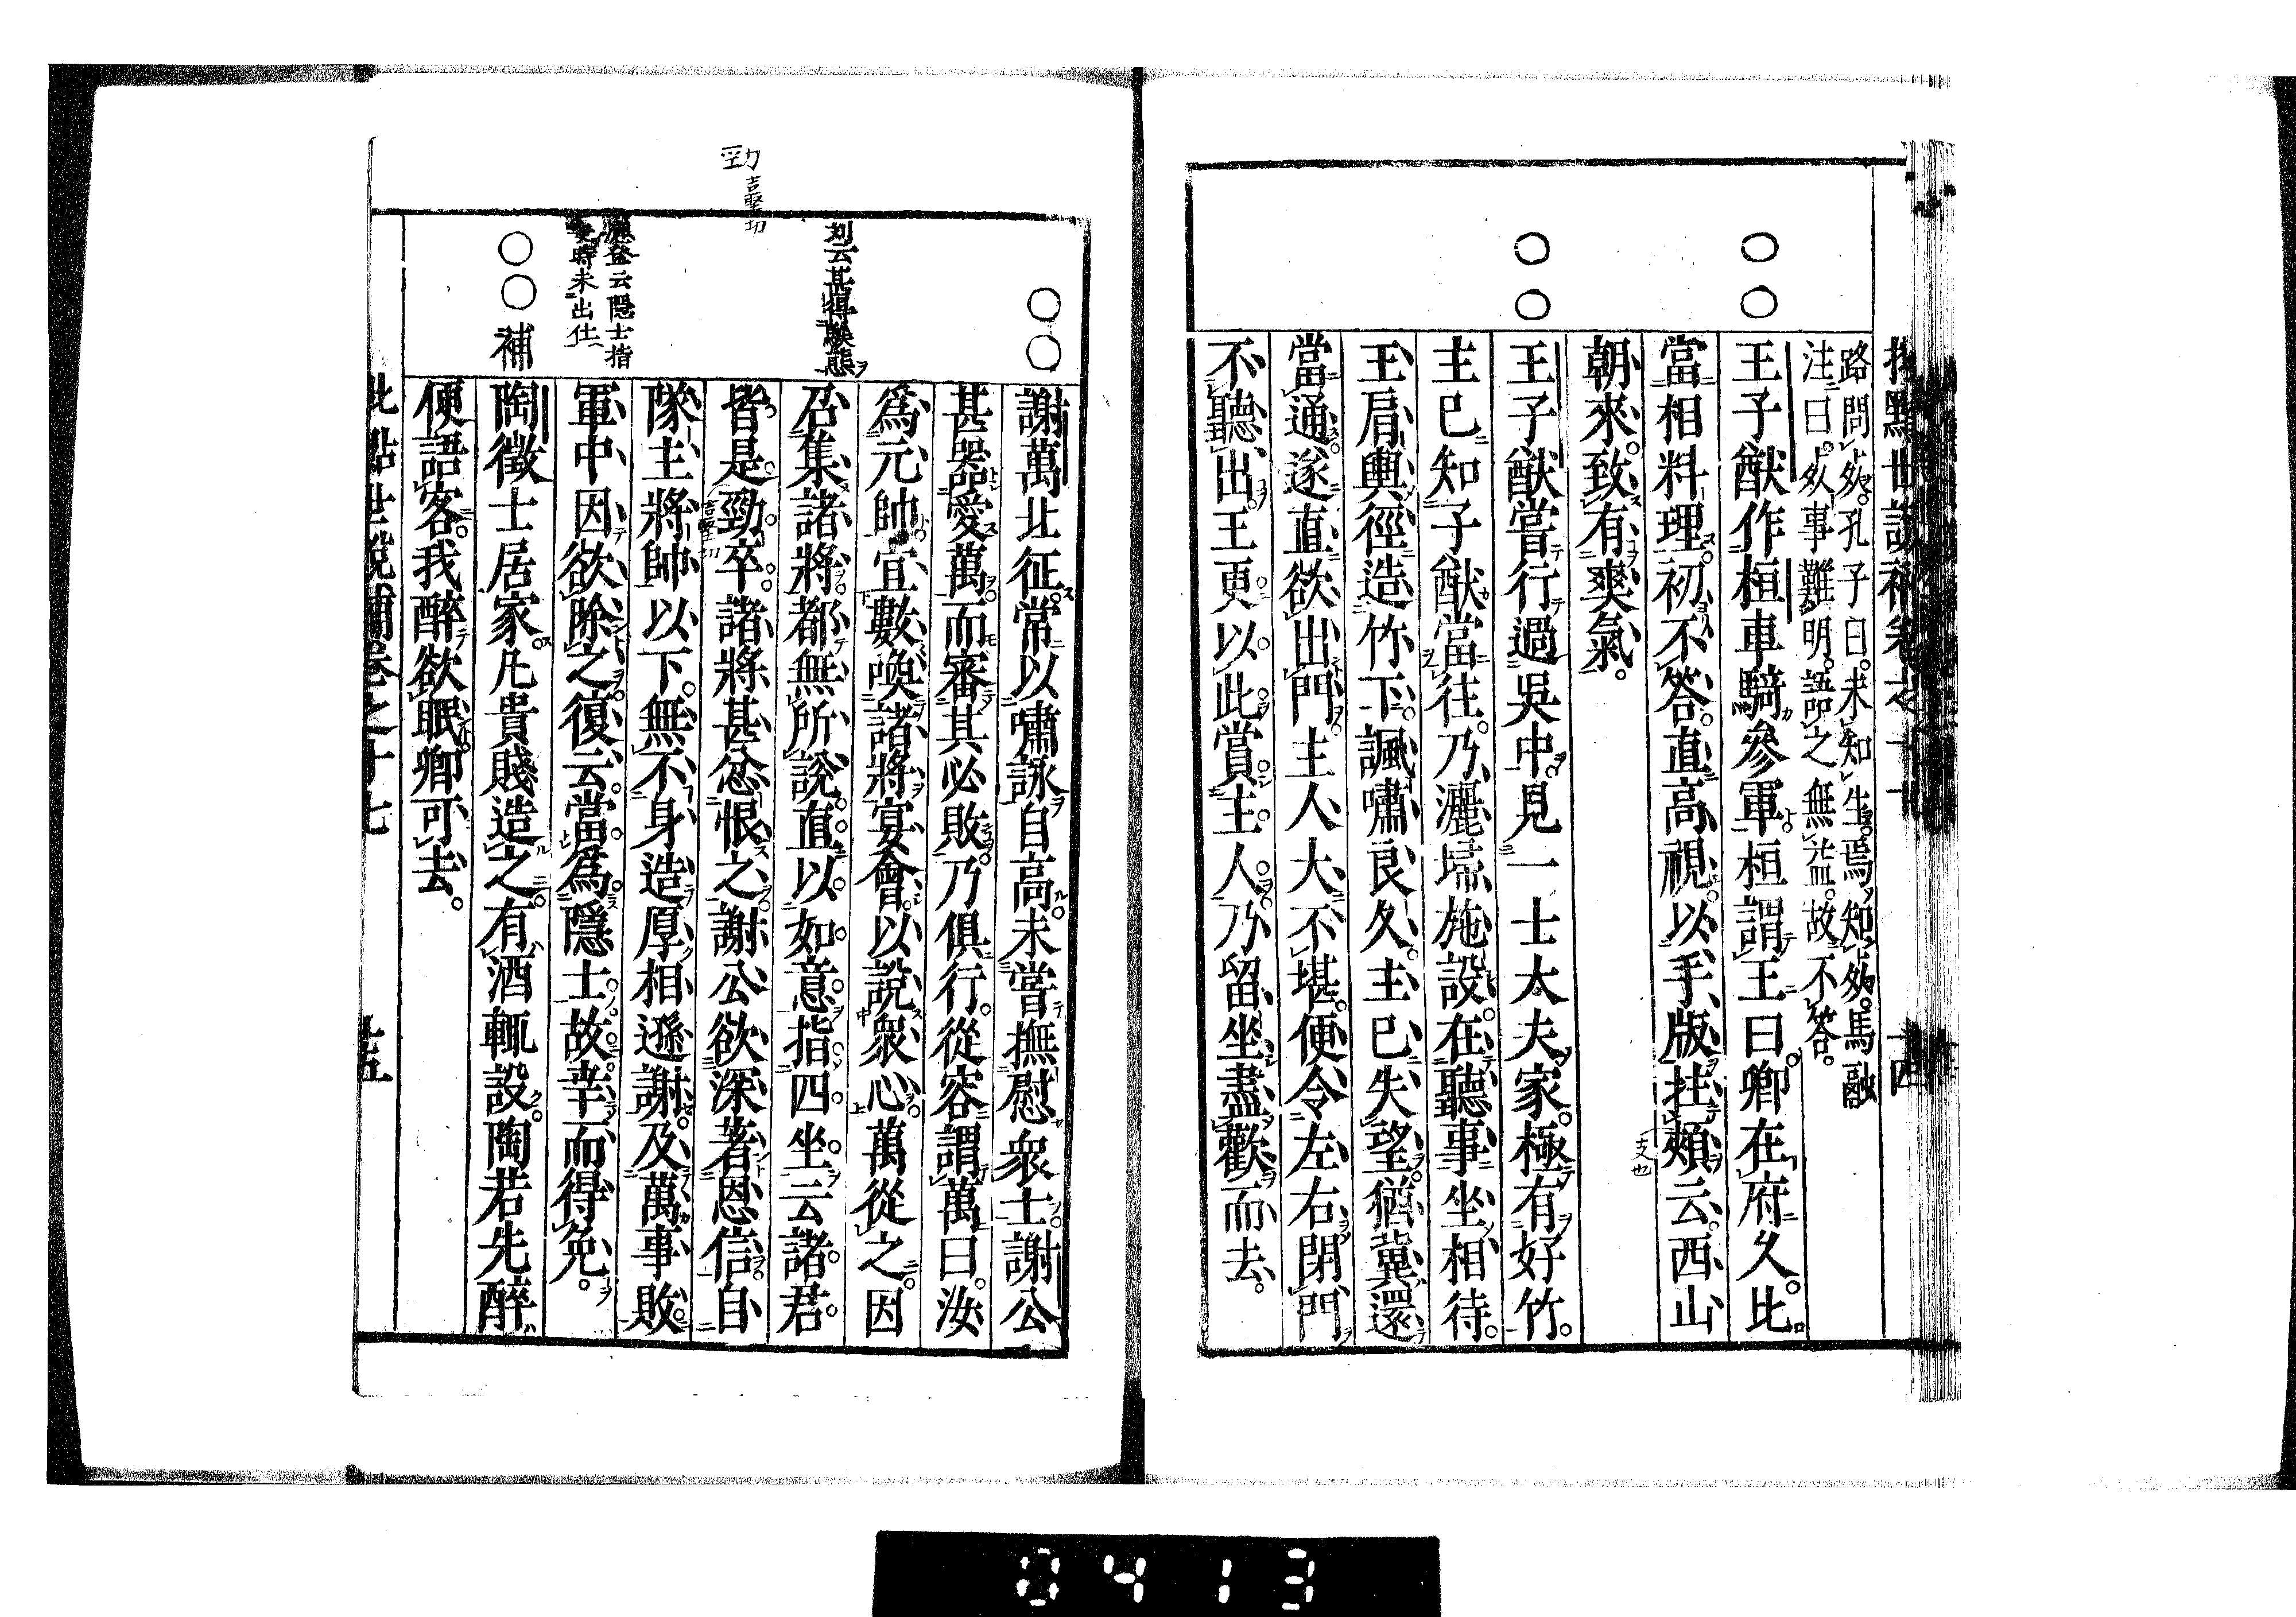 路問歿。孔子曰。未知生。焉知歿。馬融
注曰。歿事難明。語之無益。故不答。
王子猷作桓車騎參軍桓謂王曰。卿在府久。比
當相料理。初不答。直高視。以手版拄頰云。西山
朝來。致有爽氣。
支也
王子猷嘗行過吳中。見一士大夫家。極有好竹。
主已知子猷當往。乃灑埽施設。在聽事坐相待。
王肩輿徑造竹下。諷嘯良久。主已失望。猶冀還
當通。遂直欲出門。主人大不堪。便令左右閉門
不聽出。王更以此賞主人。乃留坐。盡歡而去。
謝萬北征。常以嘯詠自高。未嘗撫慰衆士。謝公
甚器愛萬。而審其必敗。乃俱行。從容謂萬曰。汝
爲元帥。宜數喚諸將宴會。以說衆心。萬從之。因
召集諸將。都無所說。直以如意指四坐云。諸君
皆是勁卒。諸將甚忿恨之。謝公欲深著恩信。自
隊主將帥以下。無不身造。厚相遜謝。及萬事敗。
軍中因欲除之。復云。當爲隱士。故幸而得免。
陶徵士居家。凡貴賤造之。有酒輒設。陶若先醉
便語客。我醉欲眠。卿可去。
劉云甚得騃態
勁 吉堅切
吉堅切
云隱士指
安時未出仕
補
批點世說補卷之十七
十五